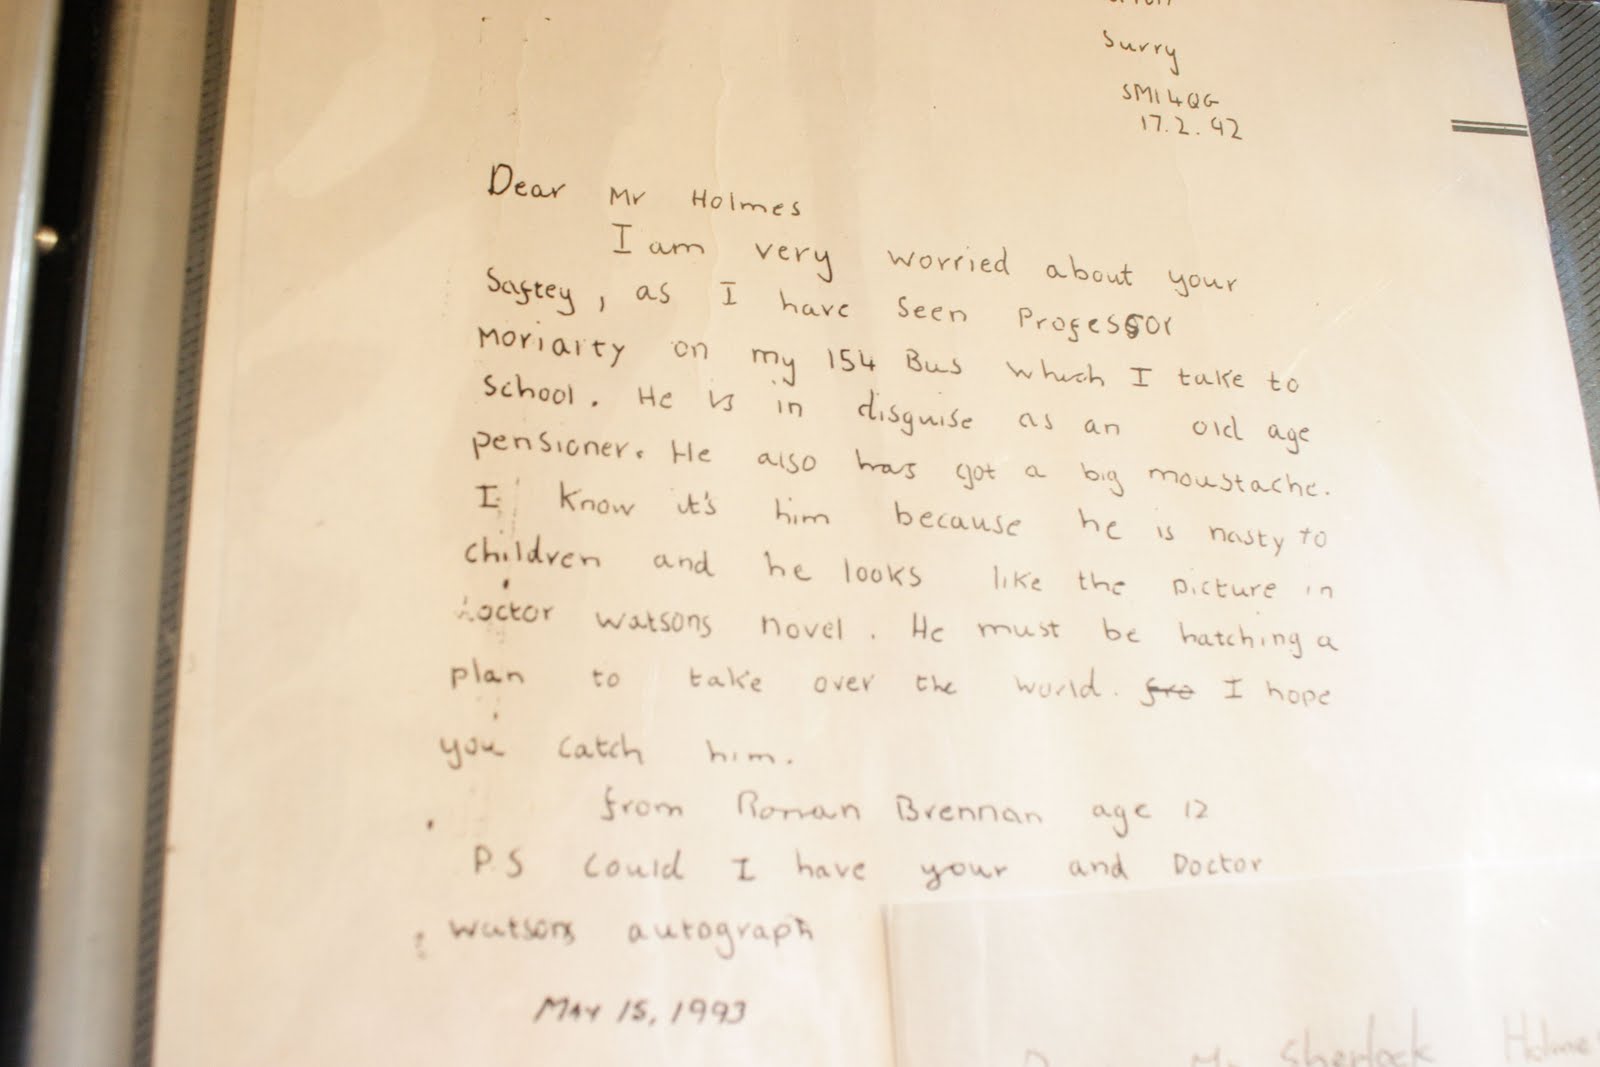 Surry
SM1 4QG
17.2.92
Dear Mr Holmes
I am very worried about your
Saftey, as I have seen Professor
Moriarty on my 154 Bus which I take to
School. He is in disguise as an old age
pensioner. He also has got a big moustache.
I know it's him because he is nasty to
children and he looks like the picture in
Doctor Watsons novel. He must be hatching a
plan to take over the world. fro I hope
you catch him.
from Ronan Brennan age 12
P.S Could I have your and Doctor
Watsons autograph
MAY 15, 1993
Mr Sherlock Holmes